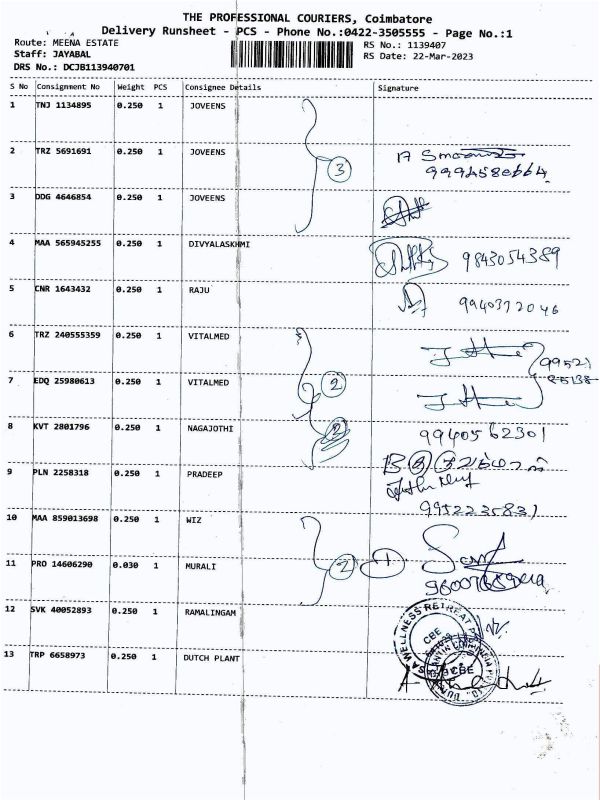 THE PROFESSIONAL COURIERS, Coimbatore
Delivery Runsheet - PCS - Phone No.:0422-3505555 - Page No.:1
Route: MEENA ESTATE
RS No.: 1139407
Staff: JAYABAL
RS Date: 22-Mar-2023
DRS No.: DCJB113940701
S No Consignment No Weight PCS Consignee Details Signature
1 TNJ 1134895 0.250 1 JOVEENS
2 TRZ 5691691 0.250 1 JOVEENS
3
3 DDG 4646854 0.250 1 JOVEENS
4 MAA 565945255 0.250 1 DIVYALASKHMI
9843054389
5 CNR 1643432 0.250 1 RAJU
9940372046
6 TRZ 240555359 0.250 1 VITALMED
99521
7 EDQ 25980613 0.250 1 VITALMED 2
8 KVT 2801796 0.250 1 NAGAJOTHI 2
9940562301
9 PLN 2258318 0.250 1 PRADEEP
9952235831
10 MAA 859013698 0.250 1 WIZ
11 PRO 14606290 0.030 1 MURALI 2 1
12 SVK 40052893 0.250 1 RAMALINGAM
WELLNESS RETREAT
CBE
13 TRP 6658973 0.250 1 DUTCH PLANT
CBE